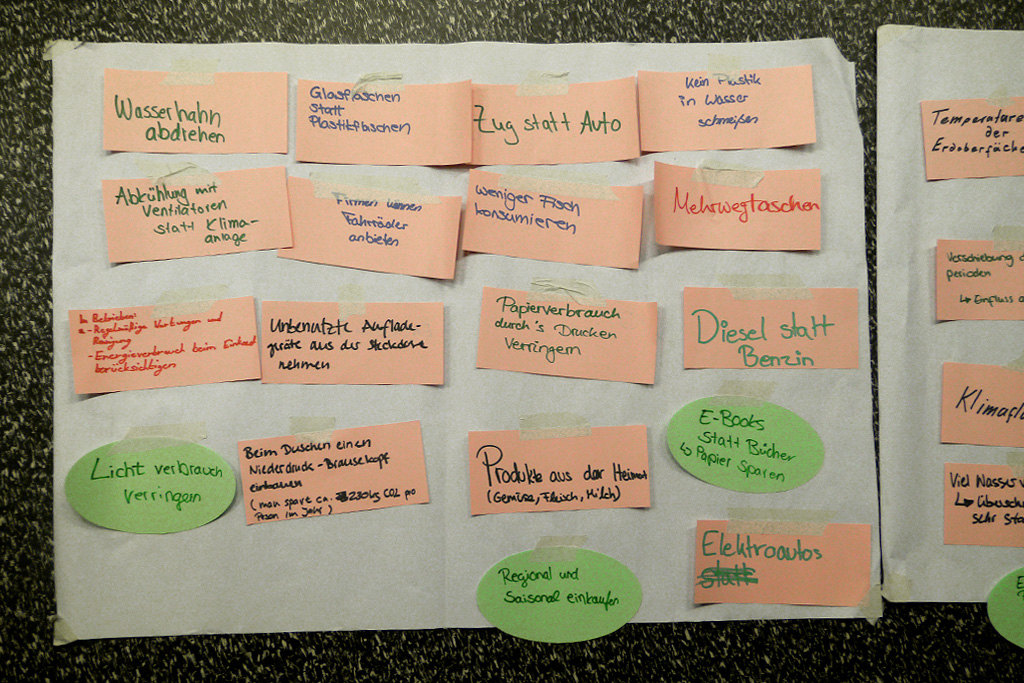 Wasserhahn
abdrehen
Glasflaschen
statt
Plastikflaschen
Zug statt Auto
Kein Plastik
in Wasser
schmeißen
Abkühlung mit
Ventilatoren
statt Klima-
anlage
Firmen können
Fahrräder
anbieten
weniger Fisch
konsumieren
Mehrwegtaschen
In Betrieben:
- Regelmäßige Wartungen und
Reinigung
- Energieverbrauch beim Einkauf
berücksichtigen
Unbenutzte Auflade-
geräte aus der Steckdose
nehmen
Papierverbrauch
durch's Drucken
Verringern
Diesel statt
Benzin
Licht verbrauch
verringern
Beim Duschen einen
Niederdruck-Brausekopf
einbauen
(man spare ca. 230kg CO2 pro
Person im Jahr)
Produkte aus der Heimat
(Gemüse, Fleisch, Milch)
E-Books
statt Bücher
↳ Papier sparen
Regional und
Saisonal einkaufen
Elektroautos
statt
Temperature
der
Erdoberfläche
Verschiebung d
perioden
↳ Einfluss a
Klimafl
Viel Wasser v
↳ Überschw
sehr sta